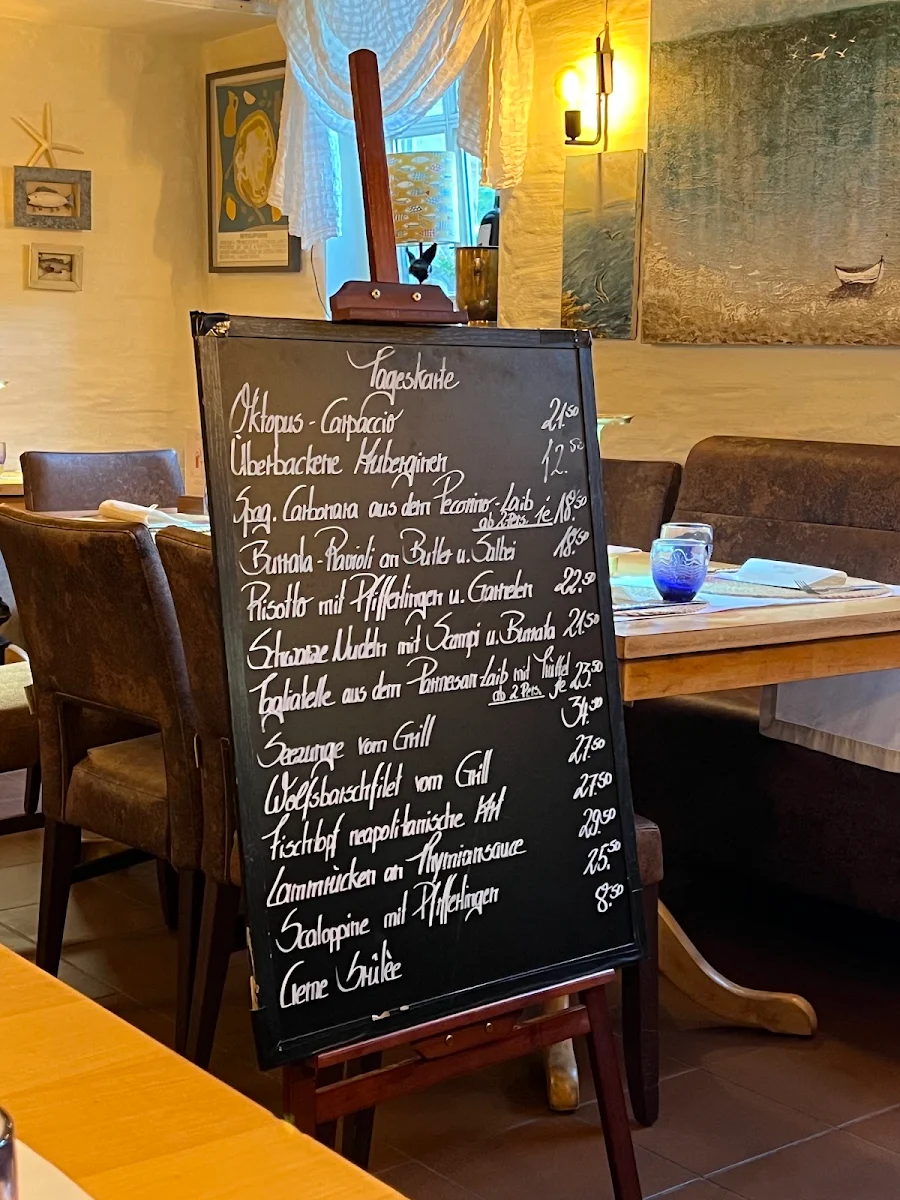 Tageskarte
Oktopus - Carpaccio 21.50
Überbackene Auberginen 12.50
Spag. Carbonara aus dem Pecorino-Laib
ab 2 Pers. je 18.50
Burrata-Ravioli an Butter u. Salbei 18.50
Risotto mit Pfifferlingen u. Garnelen 22.50
Schwarze Nudeln mit Scampi u. Burrata 21.50
Tagliatelle aus dem Parmesan-Laib mit Trüffel
ab 2 Pers. je 23.50
Seezunge vom Grill 34.50
Wolfsbarschfilet vom Grill 27.50
Fischtopf neapolitanische Art 27.50
Lammrücken an Thymiansauce 29.50
Scaloppine mit Pfifferlingen 25.50
Creme Brûlèe 8.50